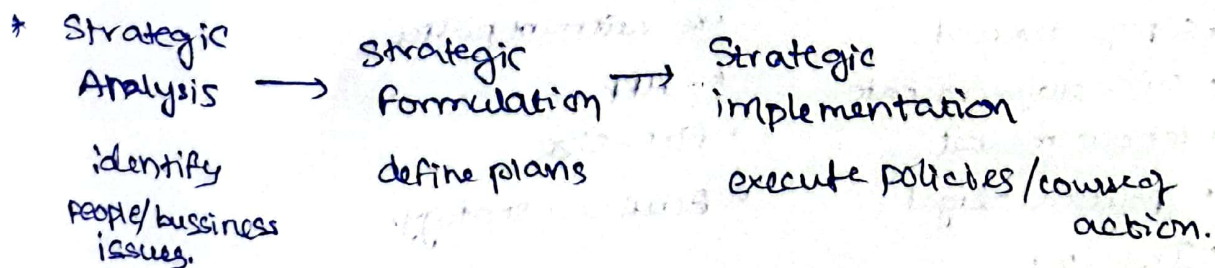 * Strategic Analysis → Strategic formulation → Strategic implementation
identify people/bussiness issues.
define plans
execute policies/course of action.